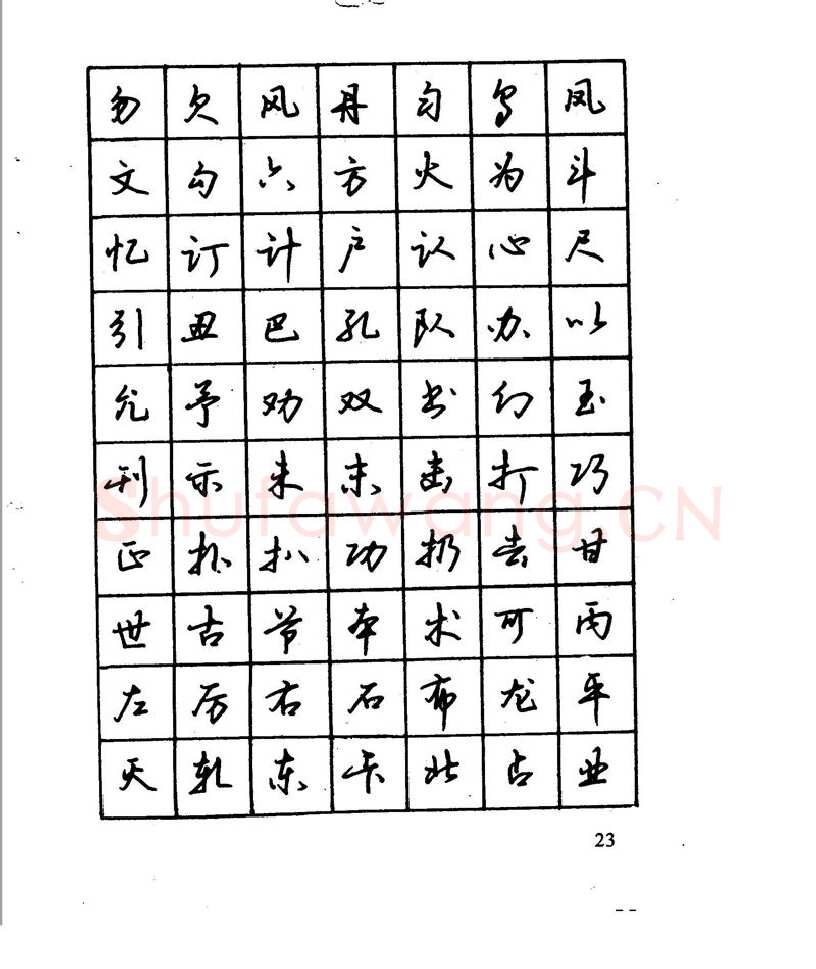 勿欠风丹匀乌凤
文勾六方火为斗
忆订计户认心尺
引丑巴孔队办以
允予劝双书幻玉
刊示未末击打巧
正扑扒功扔去甘
世古节本术可丙
左厉右石布龙平
灭轧东卡北占业
Shufawang.CN
23